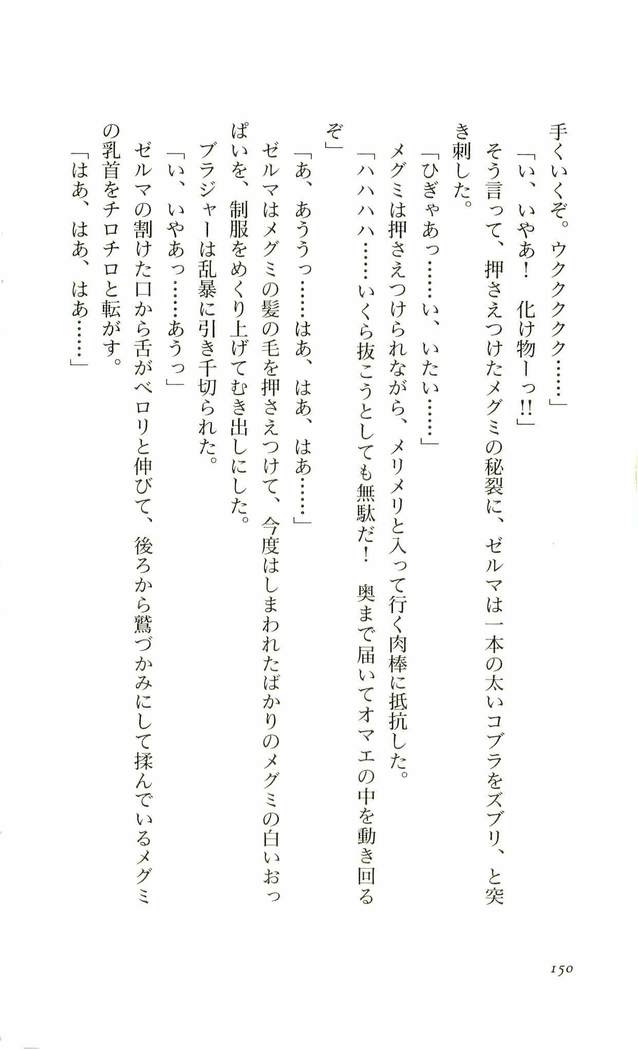 手くいくぞ。ウククククク……」
「い、いやあ！　化け物ーっ!!」
そう言って、押さえつけたメグミの秘裂に、ゼルマは一本の太いコブラをズブリ、と突
き刺した。
「ひぎゃあっ……い、いたい……」
メグミは押さえつけられながら、メリメリと入って行く肉棒に抵抗した。
「ハハハハ……いくら抜こうとしても無駄だ！　奥まで届いてオマエの中を動き回る
ぞ」
「あ、あううっ……はあ、はあ、はあ……」
ゼルマはメグミの髪の毛を押さえつけて、今度はしまわれたばかりのメグミの白いおっ
ぱいを、制服をめくり上げてむき出しにした。
ブラジャーは乱暴に引き千切られた。
「い、いやあっ……あうっ」
ゼルマの割けた口から舌がベロリと伸びて、後ろから鷲づかみにして揉んでいるメグミ
の乳首をチロチロと転がす。
「はあ、はあ、はあ……」
150